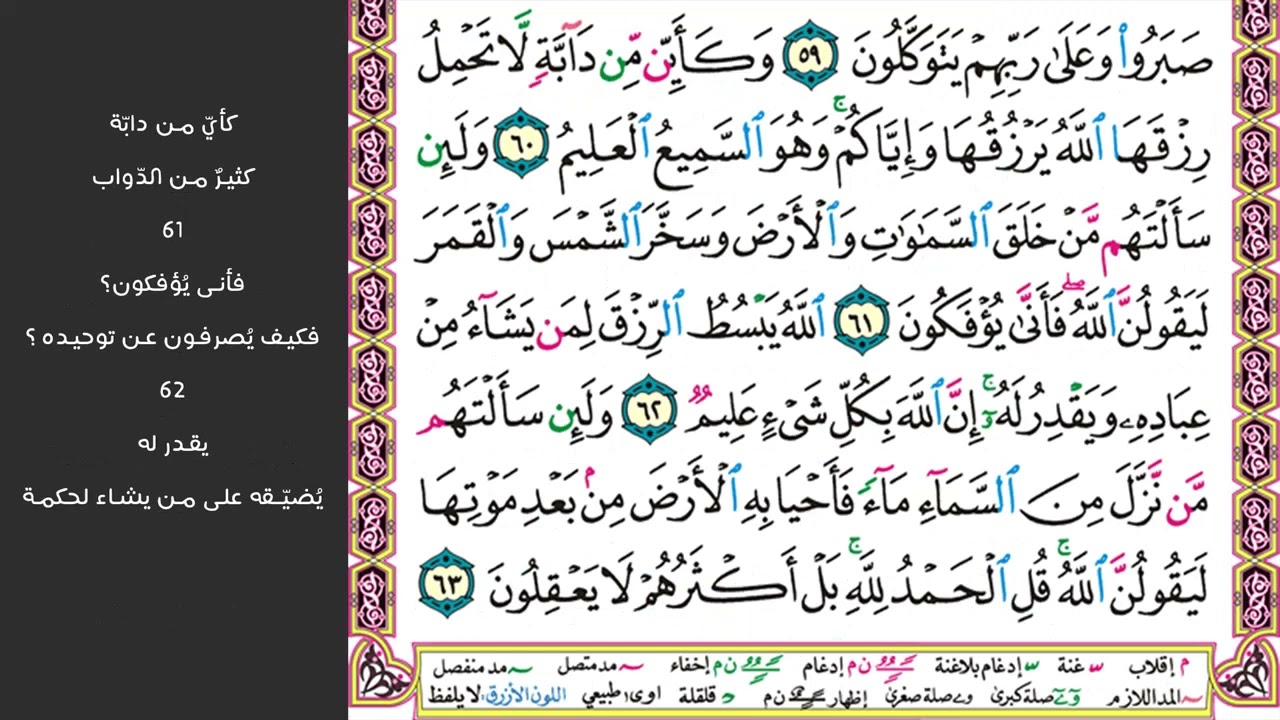 صَبَرُوا۟ وَعَلَىٰ رَبِّهِمْ يَتَوَكَّلُونَ ٥٩ وَكَأَيِّن مِّن دَآبَّةٍ لَّا تَحْمِلُ
رِزْقَهَا ٱللَّهُ يَرْزُقُهَا وَإِيَّاكُمْ ۚ وَهُوَ ٱلسَّمِيعُ ٱلْعَلِيمُ ٦٠ وَلَئِن
سَأَلْتَهُم مَّنْ خَلَقَ ٱلسَّمَٰوَٰتِ وَٱلْأَرْضَ وَسَخَّرَ ٱلشَّمْسَ وَٱلْقَمَرَ
لَيَقُولُنَّ ٱللَّهُ ۖ فَأَنَّىٰ يُؤْفَكُونَ ٦١ ٱللَّهُ يَبْسُطُ ٱلرِّزْقَ لِمَن يَشَآءُ مِنْ
عِبَادِهِۦ وَيَقْدِرُ لَهُۥٓ ۚ إِنَّ ٱللَّهَ بِكُلِّ شَىْءٍ عَلِيمٌ ٦٢ وَلَئِن سَأَلْتَهُم
مَّن نَّزَّلَ مِنَ ٱلسَّمَآءِ مَآءً فَأَحْيَا بِهِ ٱلْأَرْضَ مِنۢ بَعْدِ مَوْتِهَا
لَيَقُولُنَّ ٱللَّهُ ۚ قُلِ ٱلْحَمْدُ لِلَّهِ ۚ بَلْ أَكْثَرُهُمْ لَا يَعْقِلُونَ ٦٣
م إقلاب ~ غنة ~ إدغام بلاغنة ن م إدغام ن م إخفاء ~ مد متصل ~ مد منفصل
~ المد اللازم و ے صلة كبرى و ے صلة صغرى إظهار ن م د قلقلة اوى ا طبيعي اللون الأزرق: لا يلفظ
كأيّ من دابّة
كثيرٌ من الدّواب
61
فأنى يُؤفكون؟
فكيف يُصرفون عن توحيده ؟
62
يقدر له
يُضيّقه على من يشاء لحكمة